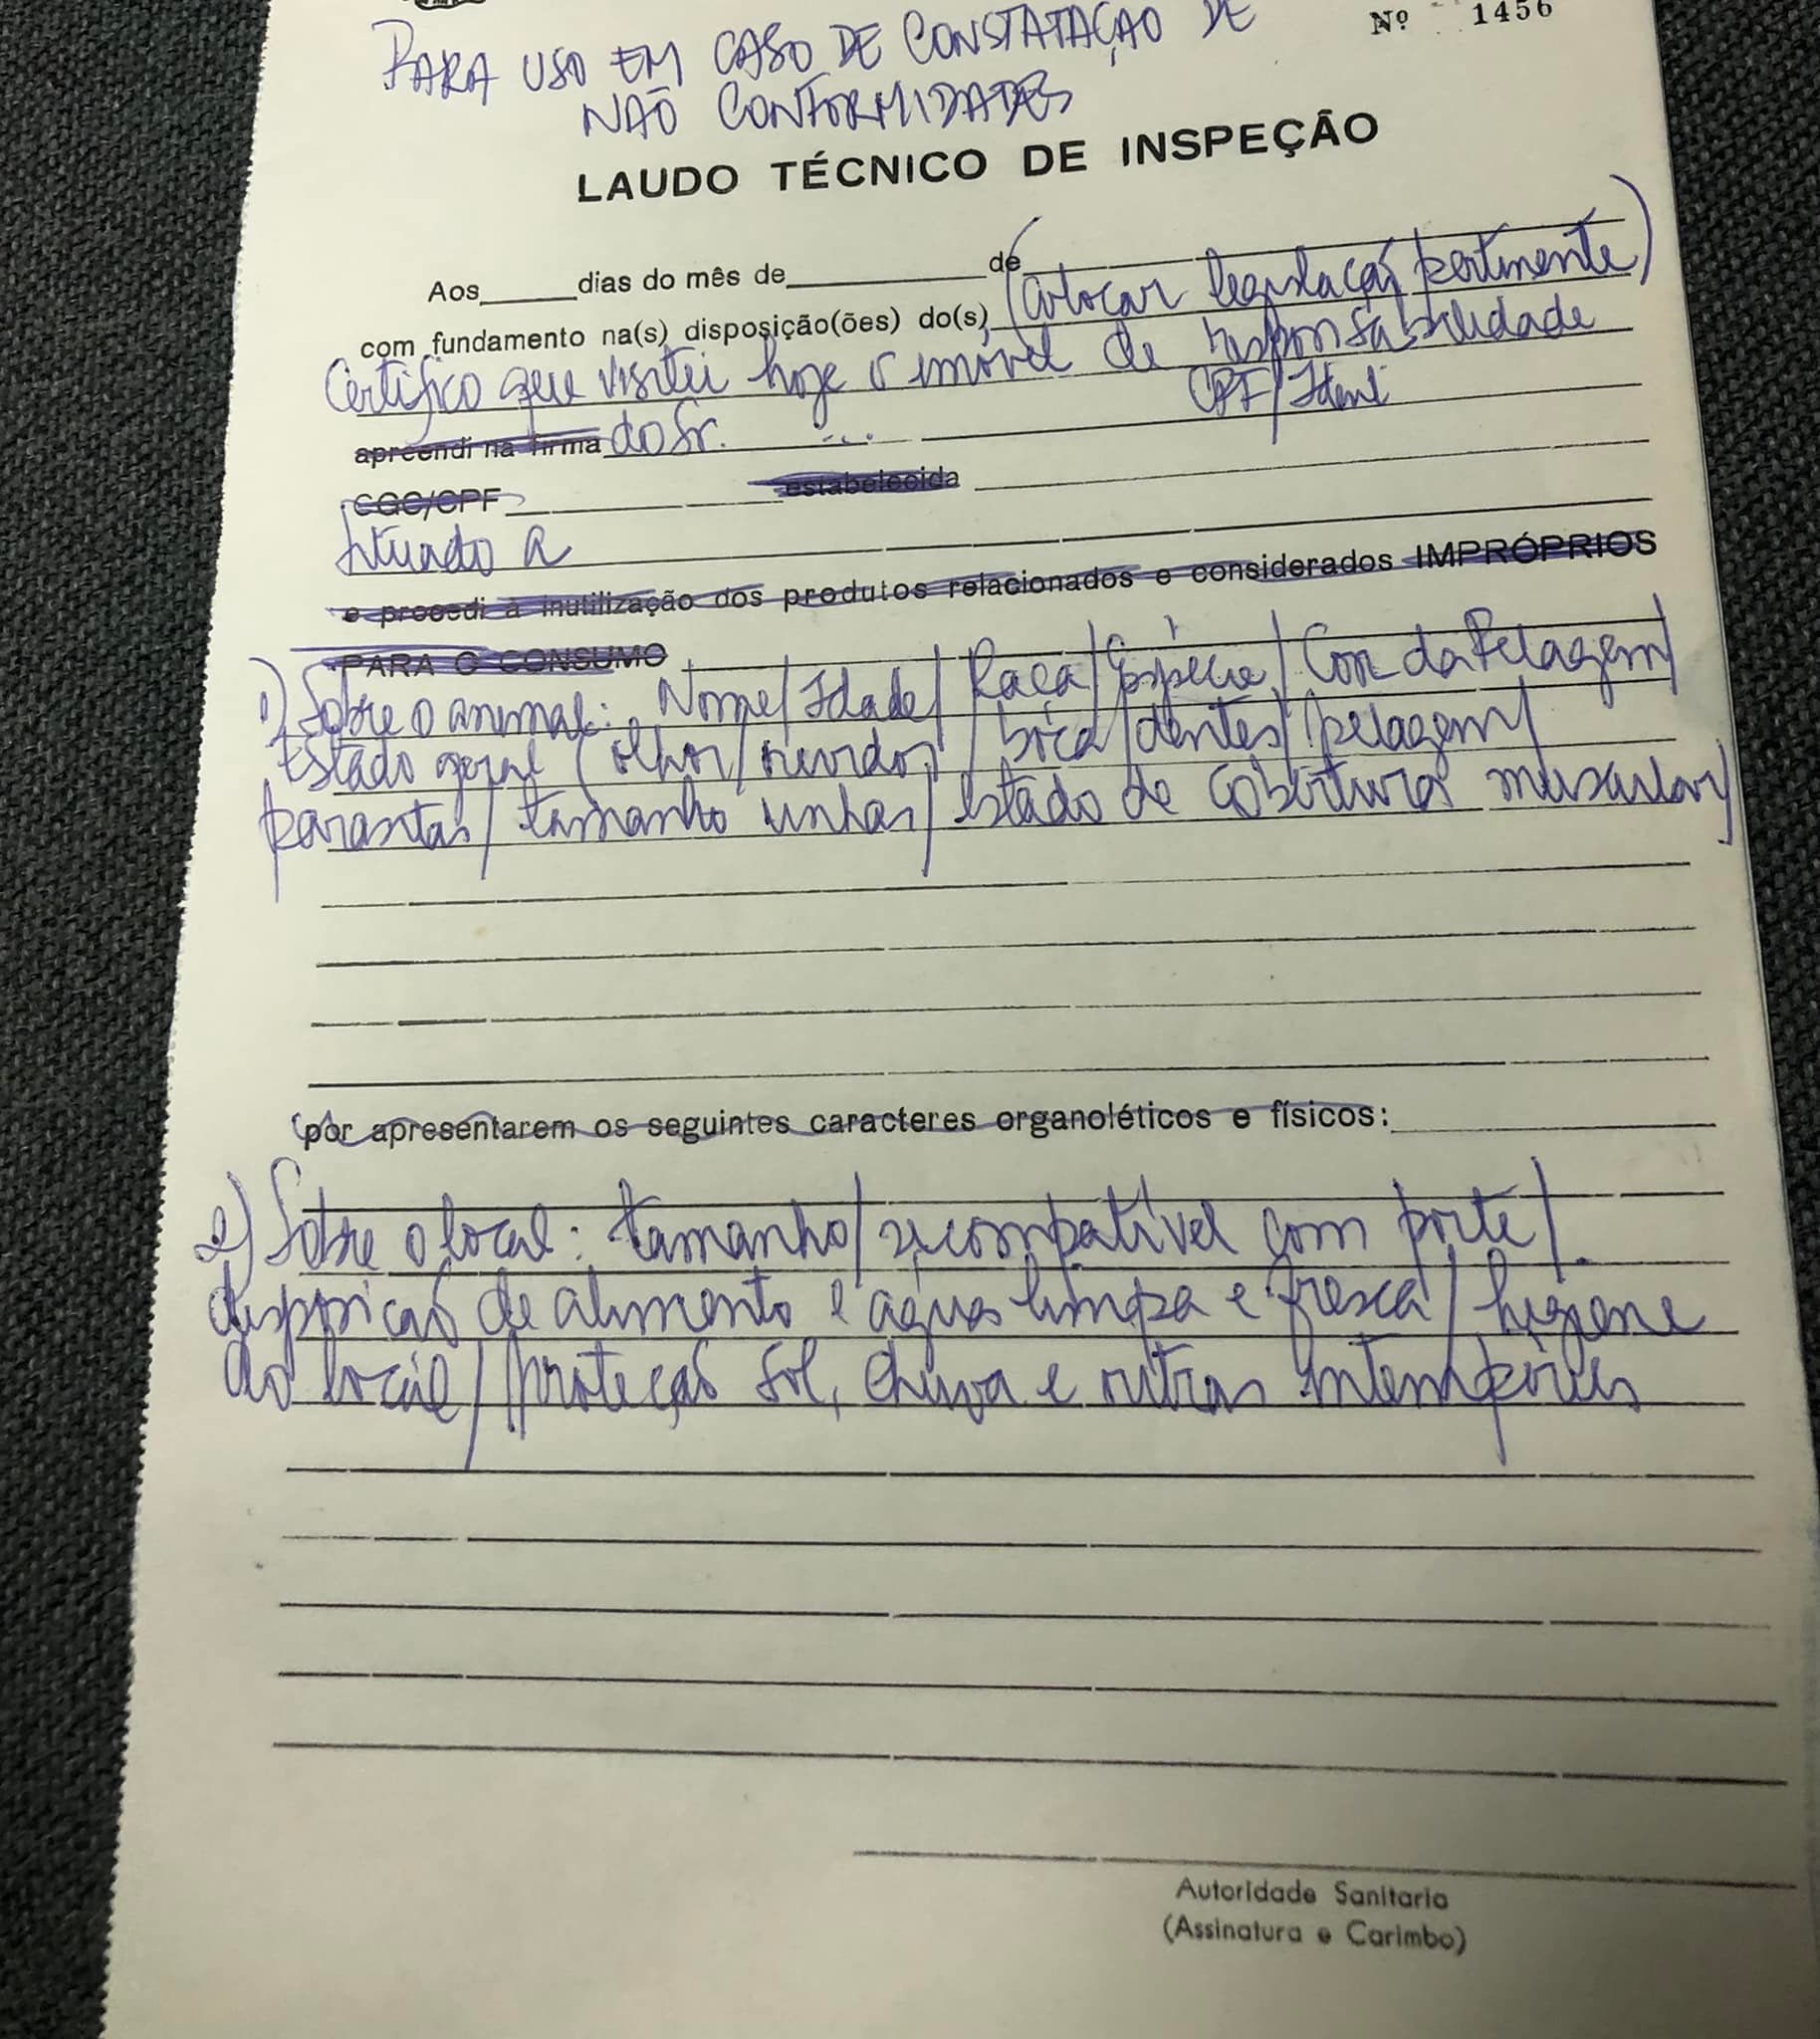 PARA USO EM CASO DE CONSTATAÇÃO DE
Nº 1456
NÃO CONFORMIDADES
LAUDO TÉCNICO DE INSPEÇÃO
Aos_____dias do mês de__________de
com fundamento na(s) disposição(ões) do(s) (colocar legislação pertinente)
Certifico que visitei hoje o imóvel de responsabilidade
apreendi na firma do Sr. ... CPF/Ident
CGC/CPF estabelecida
situado a
e procedi à inutilização dos produtos relacionados e considerados IMPRÓPRIOS
PARA O CONSUMO
1) Sobre o animal: Nome/Idade/Raça/Espécie/Cor da Pelagem/
Estado geral (olhos/ouvidos/boca/dentes/pelagem/
parasitas/tamanho unhas/estado de cobertura muscular)
por apresentarem os seguintes caracteres organoléticos e físicos:
2) Sobre o local: tamanho/se compatível com porte/
disposição de alimento e água limpa e fresca/higiene
do local/proteção sol, chuva e outras intempéries
Autoridade Sanitaria
(Assinatura e Carimbo)